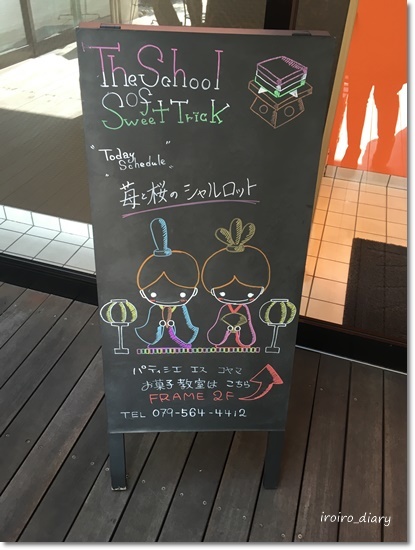 The School
of
Sweet Trick
"Today
Schedule"
苺と桜のシャルロット
パティシエ エス コヤマ
お菓子教室は こちら
FRAME 2F
TEL 079-564-4412
iroiro_diary